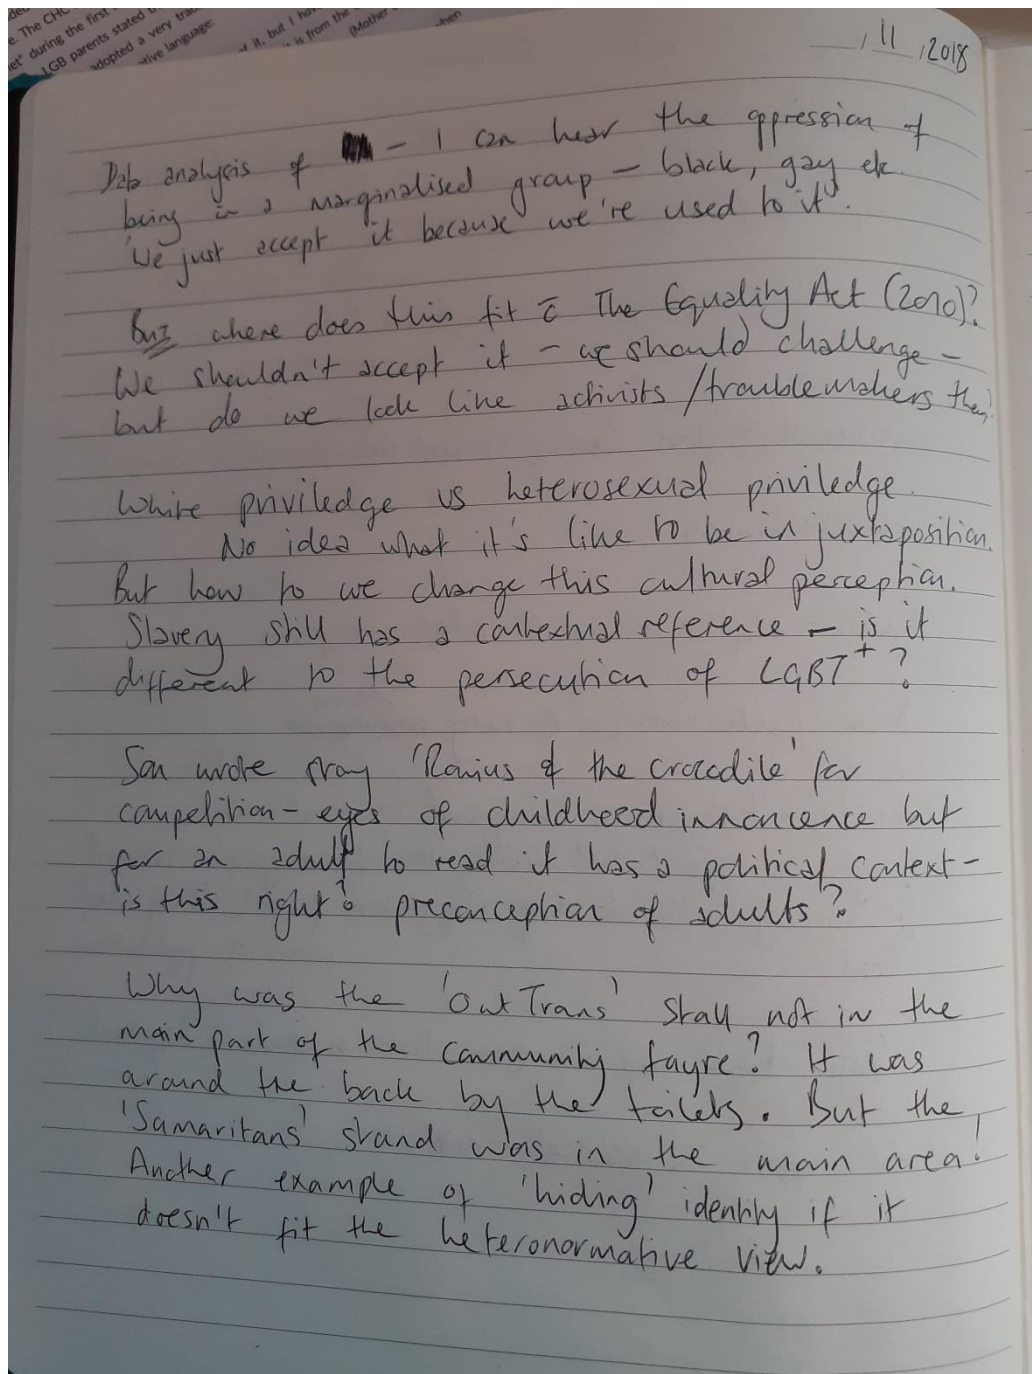 e. The CHC
et" during the first
LGB parents stated
adopted a very
ative language:
it, but I
is from the
(Mother
when
/ 11 / 2018
Data analysis of – I can hear the oppression of
being in a marginalised group – black, gay etc.
'We just accept it because we're used to it'.
But where does this fit c̄ The Equality Act (2010)?
We shouldn't accept it – we should challenge –
but do we look like activists / troublemakers then?
White priviledge vs heterosexual priviledge.
No idea what it's like to be in juxtaposition.
But how to we change this cultural perception.
Slavery still has a contextual reference – is it
different to the persecution of LGBT+ ?
Son wrote 'Ronius & the crocodile' for
competition – eyes of childhood innoncence but
for an adult to read it has a political context –
is this right? preconception of adults?
Why was the 'OutTrans' stall not in the
main part of the community fayre? It was
around the back by the toilets. But the
'Samaritans' stand was in the main area!
Another example of 'hiding' identity if it
doesn't fit the heteronormative view.